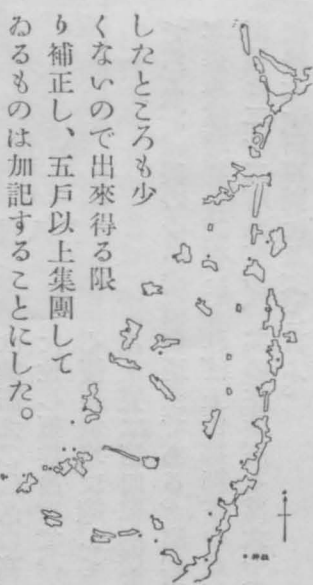 したところも少
くないので出來得る限
り補正し、五戶以上集團して
ゐるものは加記することにした。